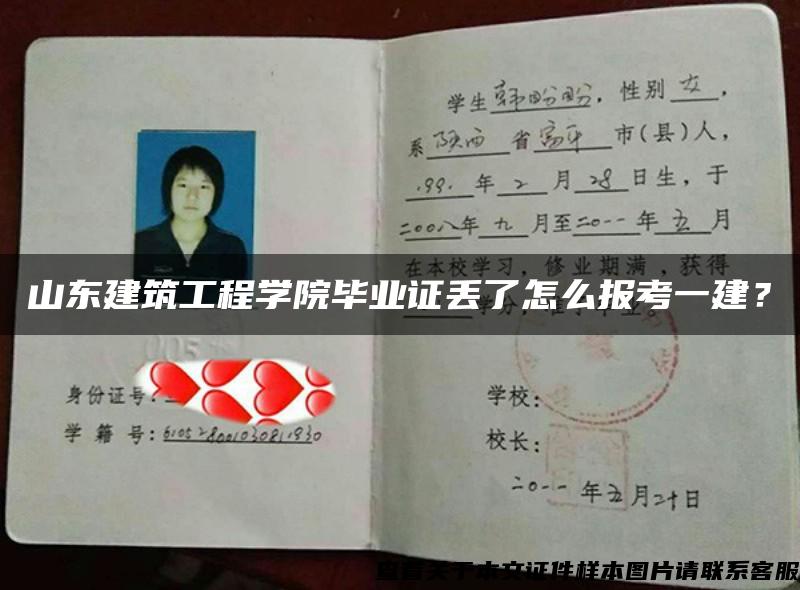 学生韩盼盼，性别女，
系陕西省富平市(县)人，
1991年2月28日生，于
二00八年九月至二0一一年五月
在本校学习，修业期满，获得
山东建筑工程学院毕业证丢了怎么报考一建？
身份证号：
学籍号：610528001030811930
学校：
校长：
二0一一年五月二十日
查看关于本文证件样本图片请联系客服